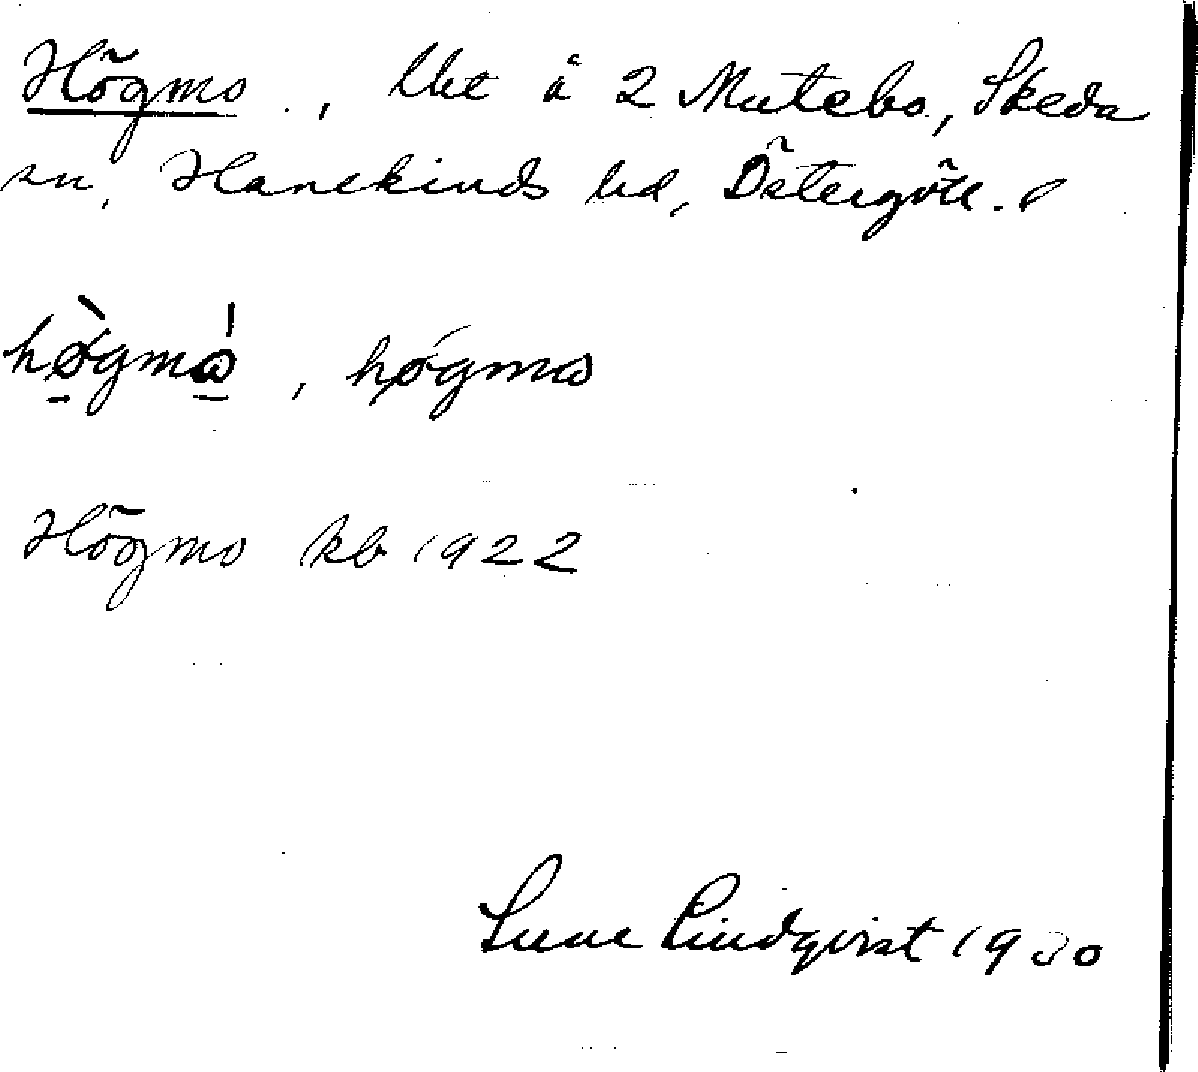 Högmo, lht å 2 Mutebo, Skeda
sn, Hanekinds hd, Östergötl.
hø̀gmὼ, hǿgmω
Högmo kb 1922
Sune Lindqvist 1930